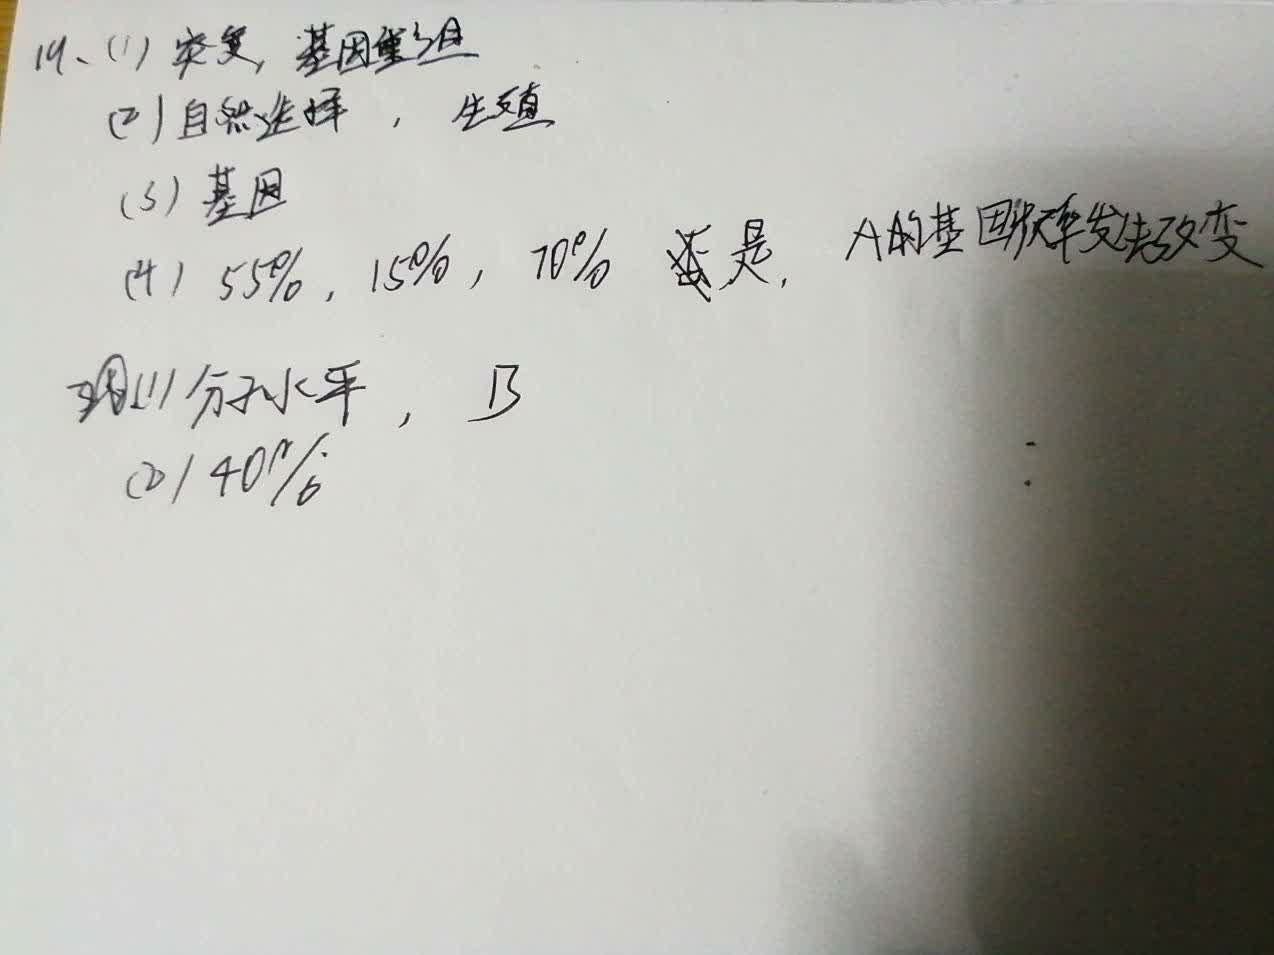 19、(1) 突变, 基因重组
(2) 自然选择, 生殖
(3) 基因
(4) 55%, 15%, 70% 是, A的基因频率发生改变
(1) 分子水平, B
(2) 40%